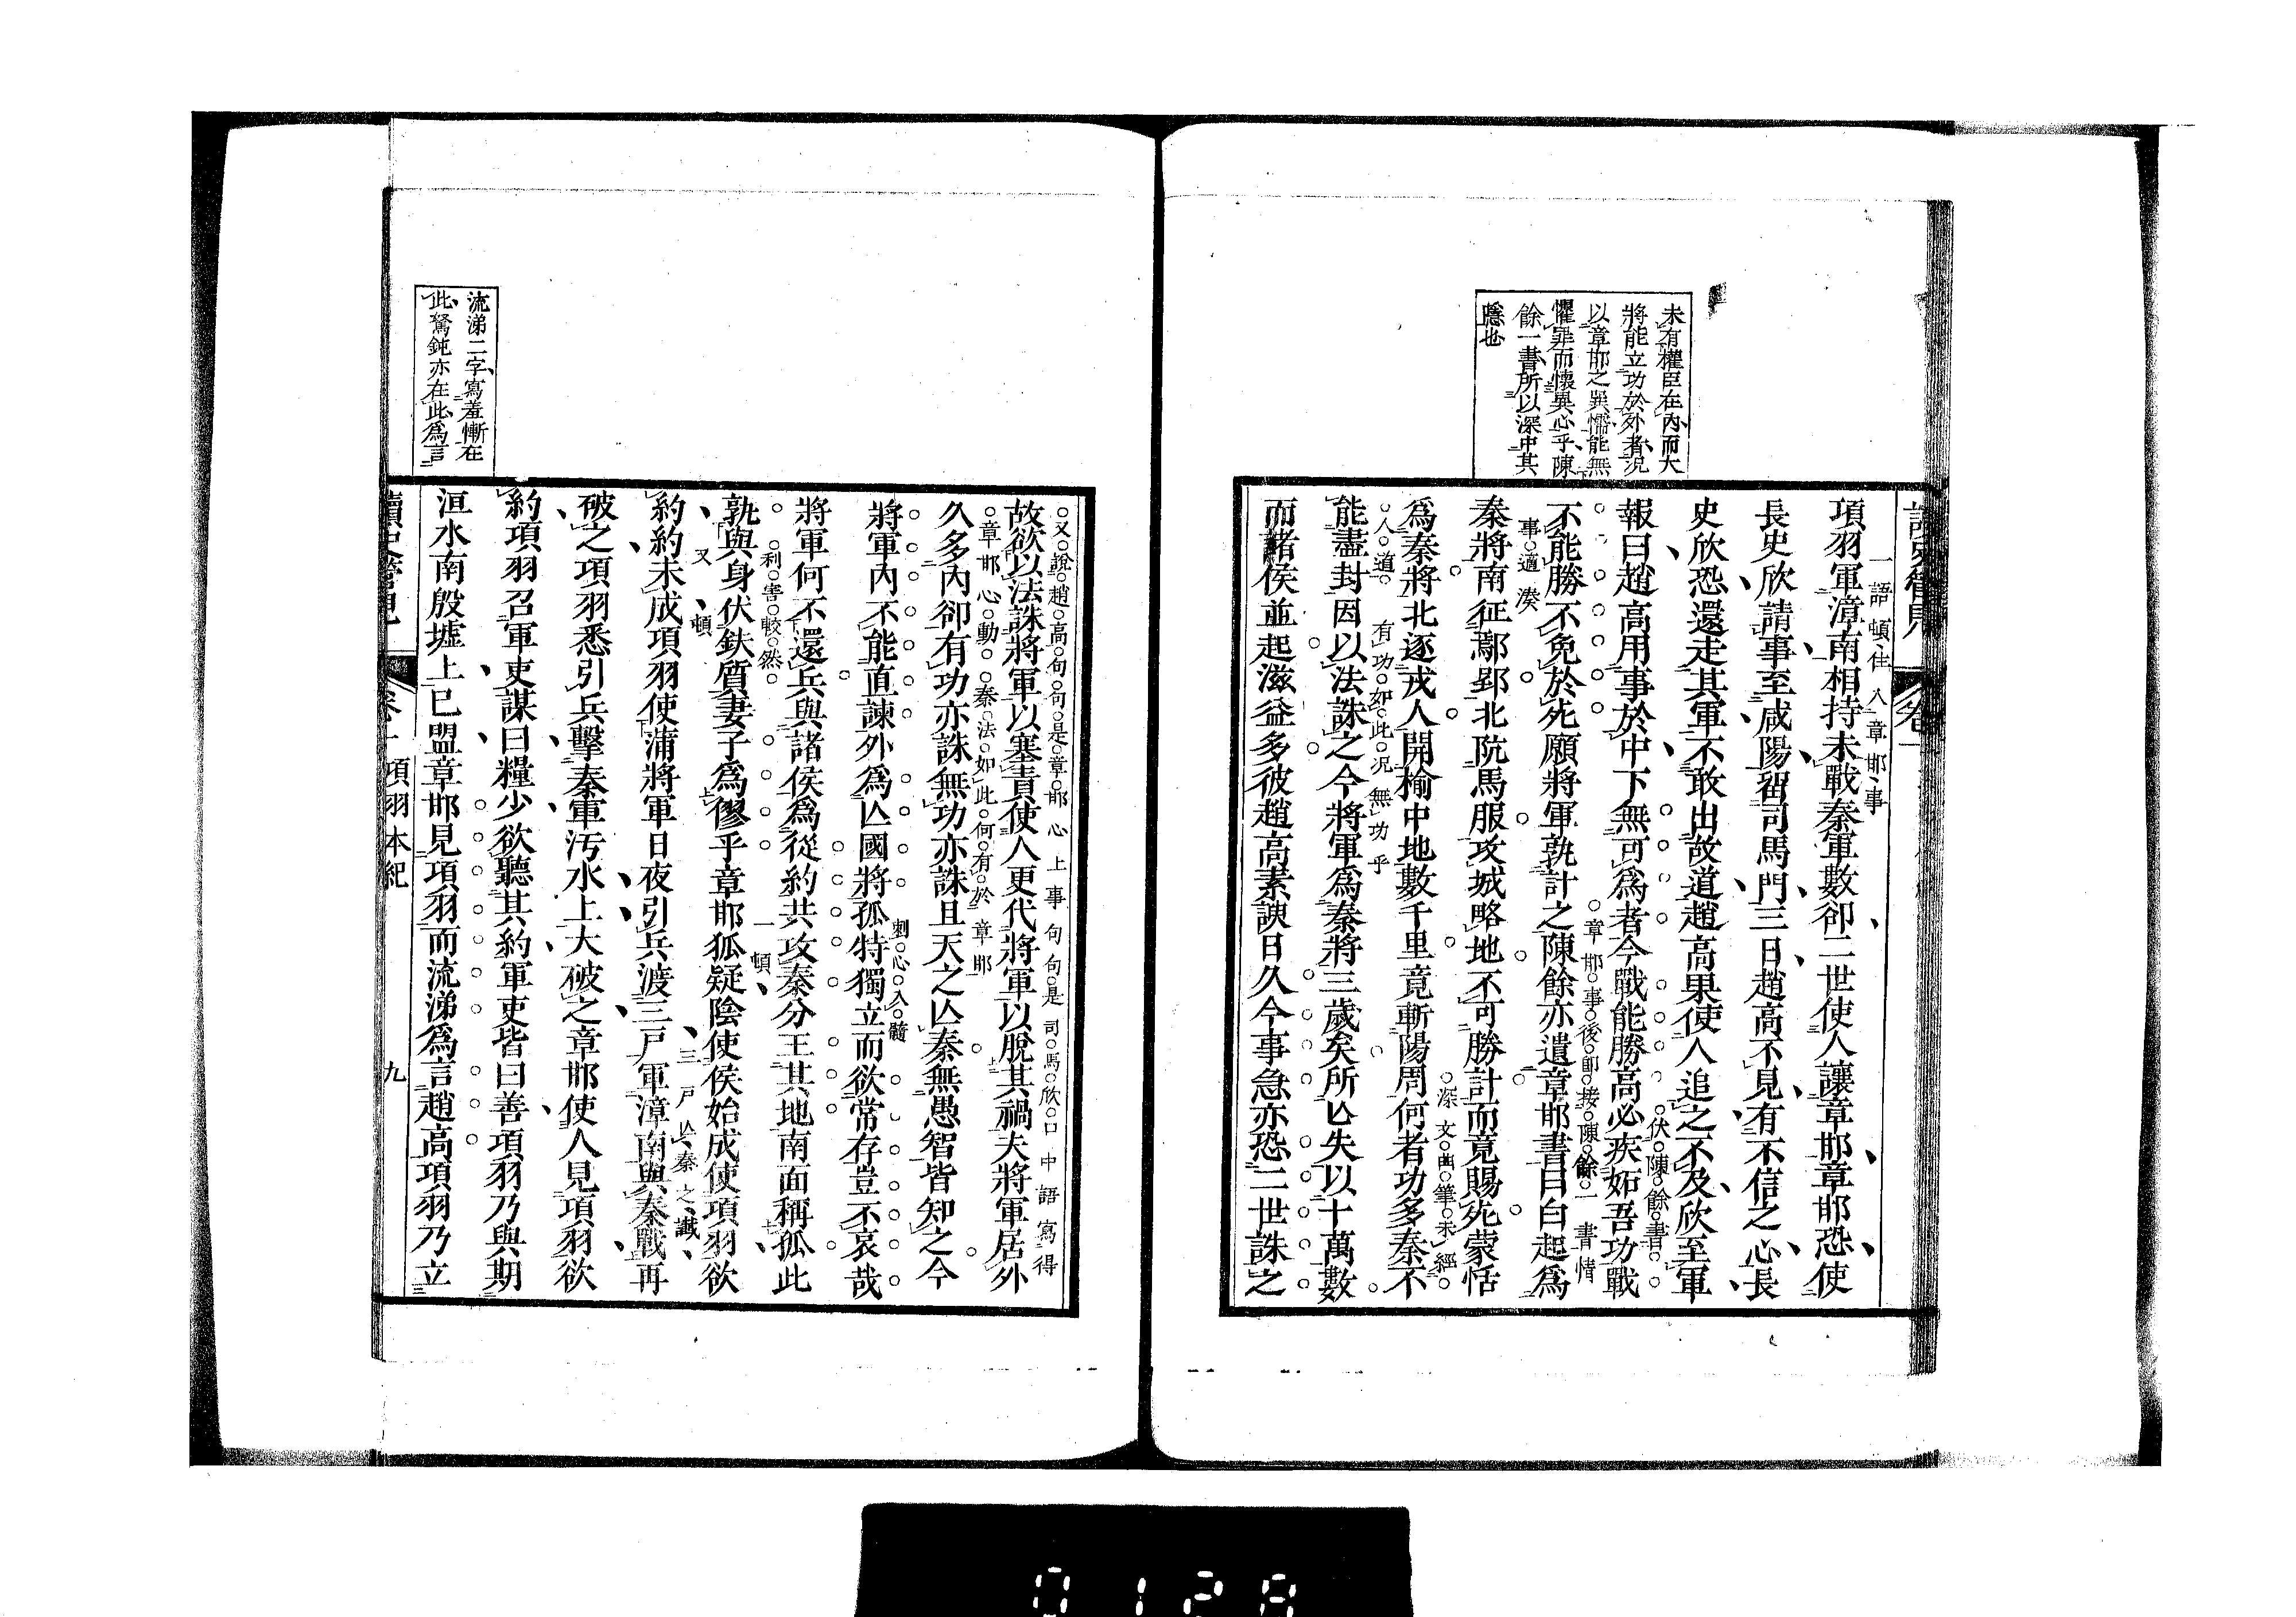 未有權臣在內而大
將能立功於外者況
以章邯之異懦能無
懼罪而懷異心乎陳
餘一書所以深中其
隱也
一語頓住入章邯事
項羽軍漳南相持未戰秦軍數卻二世使人讓章邯章邯恐使
長史欣請事至咸陽留司馬門三日趙高不見有不信之心長
史欣恐還走其軍不敢出故道趙高果使人追之不及欣至軍
伏陳餘書
報曰趙高用事於中下無可爲者今戰能勝高必疾妬吾功戰
章邯事後卽接陳餘一書情
事適湊
不能勝不免於死願將軍孰計之陳餘亦遺章邯書曰白起爲
秦將南征鄢郢北阬馬服攻城略地不可勝計而竟賜死蒙恬
深文曲筆未經
人道
爲秦將北逐戎人開榆中地數千里竟斬陽周何者功多秦不
有功如此况無功乎
能盡封因以法誅之今將軍爲秦將三歲矣所亾失以十萬數
而諸侯並起滋益多彼趙高素諛日久今事急亦恐二世誅之
又說趙高句句是章邯心上事句句是司馬欣口中語寫得
故欲以法誅將軍以塞責使人更代將軍以脫其禍夫將軍居外
章邯心動 秦法如此何有於章邯
久多內卻有功亦誅無功亦誅且天之亾秦無愚智皆知之今
刺心入髓
將軍內不能直諫外爲亾國將孤特獨立而欲常存豈不哀哉
將軍何不還兵與諸侯爲從約共攻秦分王其地南面稱孤此
利害較然 一頓
孰與身伏鈇質妻子爲僇乎章邯狐疑陰使侯始成使項羽欲
又頓 三戸亾秦之讖
約約未成項羽使蒲將軍日夜引兵渡三戸軍漳南與秦戰再
破之項羽悉引兵擊秦軍汚水上大破之章邯使人見項羽欲
約項羽召軍吏謀曰糧少欲聽其約軍吏皆曰善項羽乃與期
洹水南殷墟上已盟章邯見項羽而流涕爲言趙高項羽乃立
流涕二字寫羞慚在
此駑鈍亦在此爲言
讀史管見
卷一 項羽本紀
九